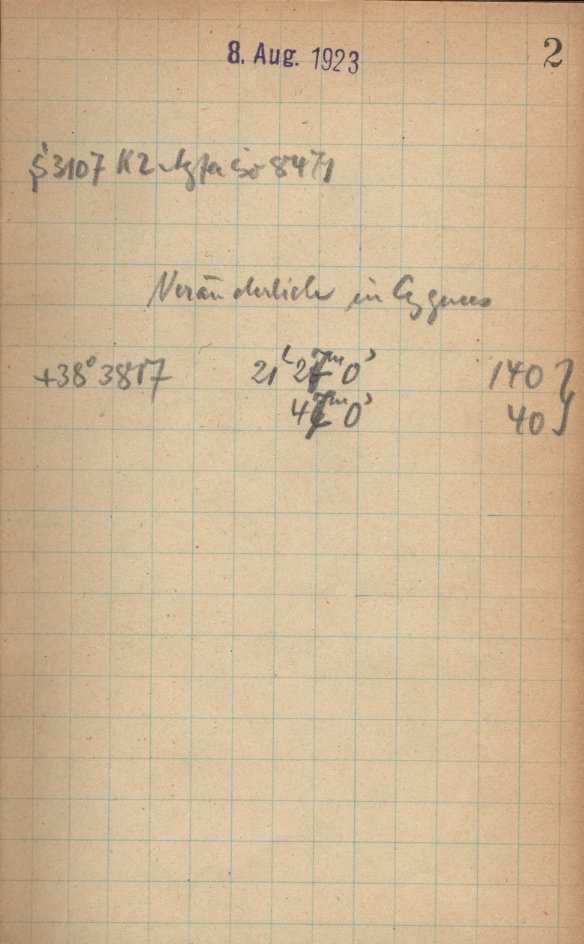 8. Aug. 1923 2
S 3107 K2 Agfa Iso 8471
Veränderliche in Cygnus
+38° 3817 21ʰ 27ᵐ 0ˢ 140 }
47ᵐ 0ˢ 40 }